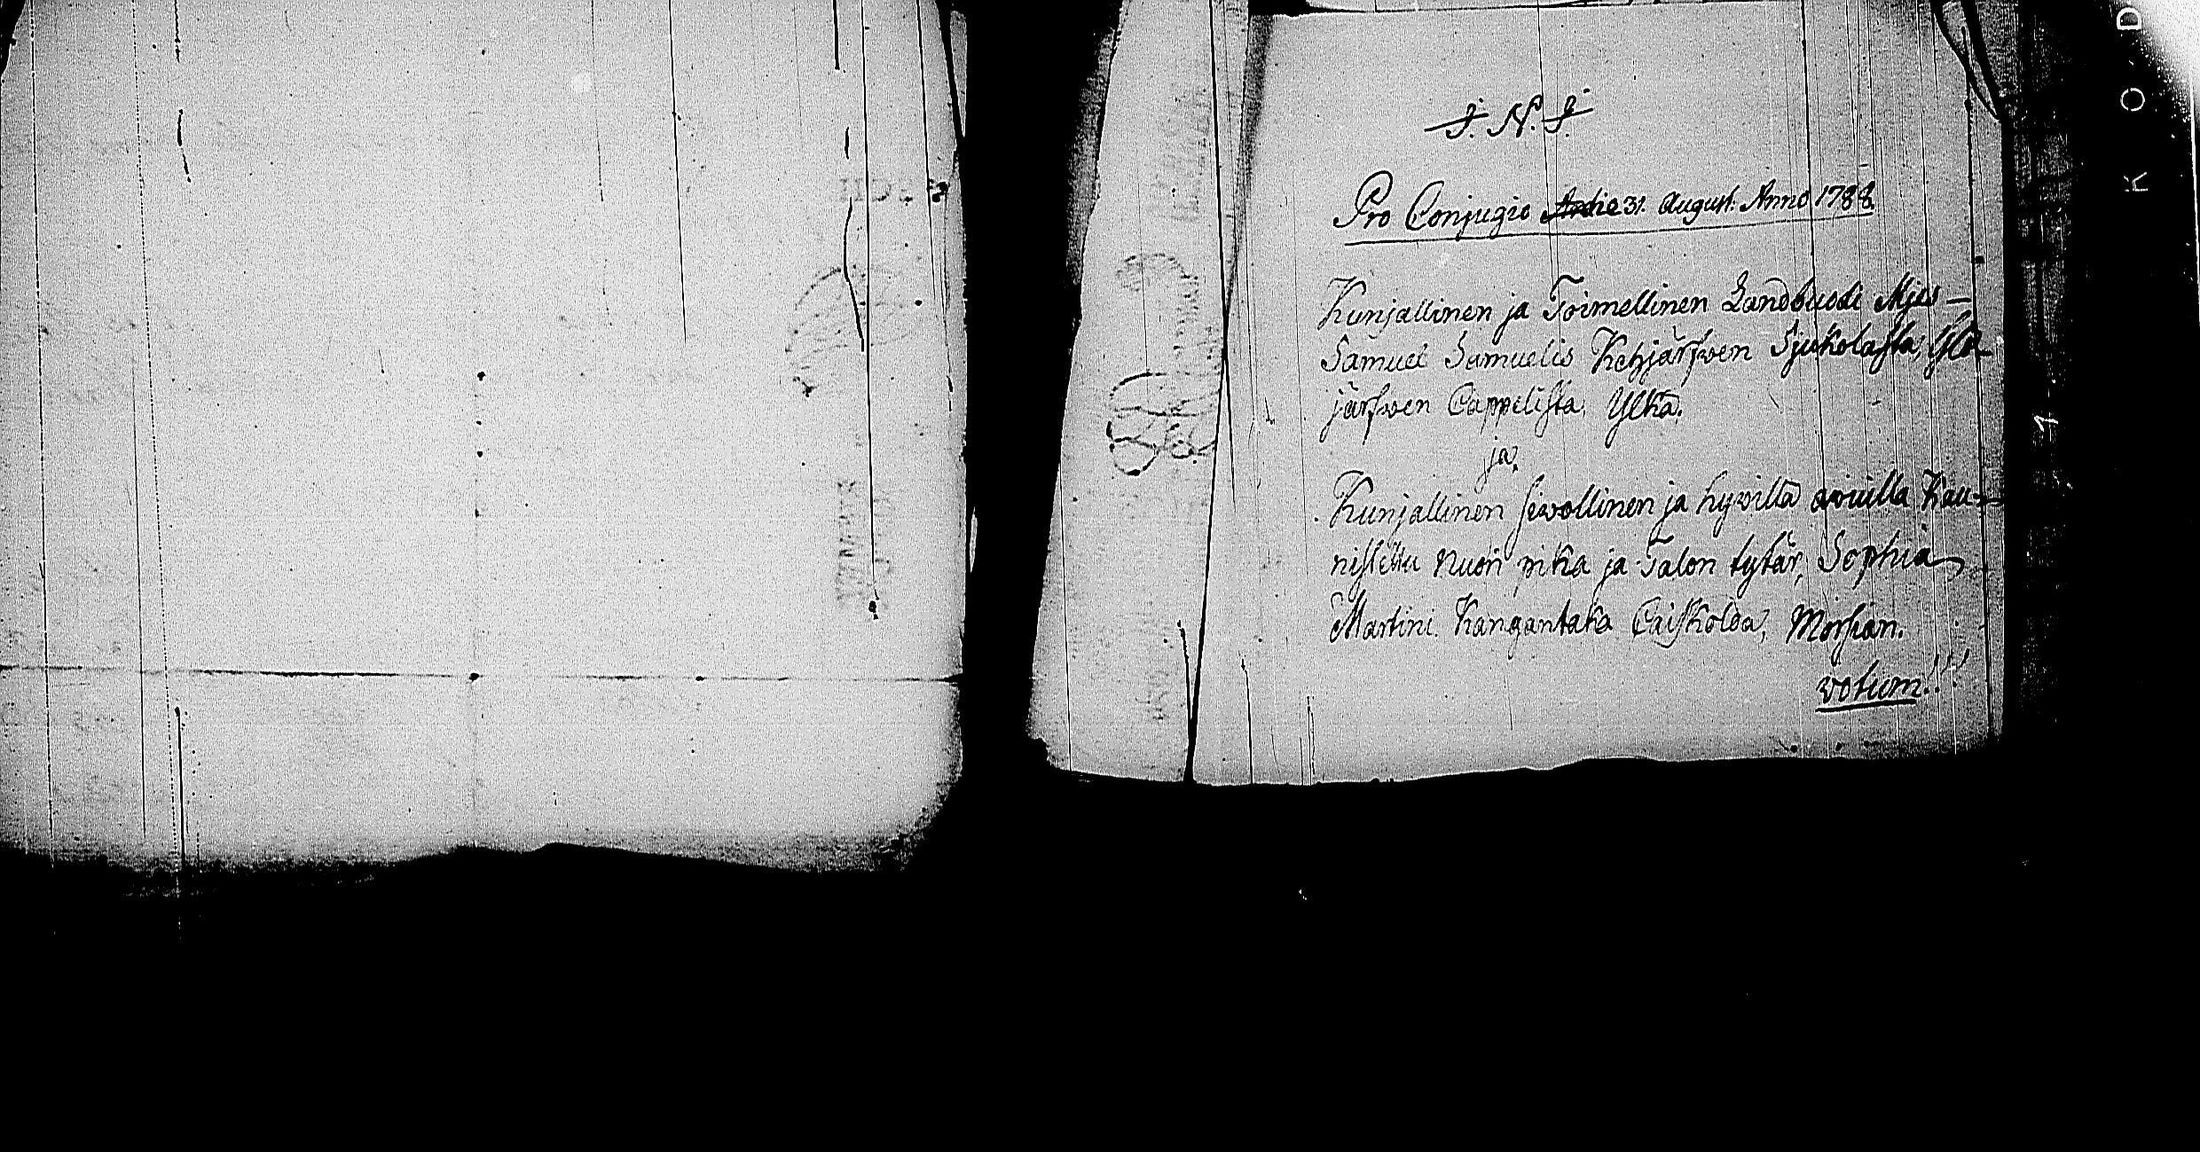 J. N. J.
Pro Conjugio 31. August: Anno 1788.
Kunjallinen ja Toimellinen Landbuodi Mjes-
Samuel Samuelis Ketzjärfwen Sjukolasta,
järfwen Cappelista, Ylkä.
ja,
Kunjallinen siwollinen ja hywillä awuilla Kau-
nistettu Nuori pika ja Talon tytär, Sophia
Martini. Kangantaka Caiskolda, Morsian.
votum!!!
KOD